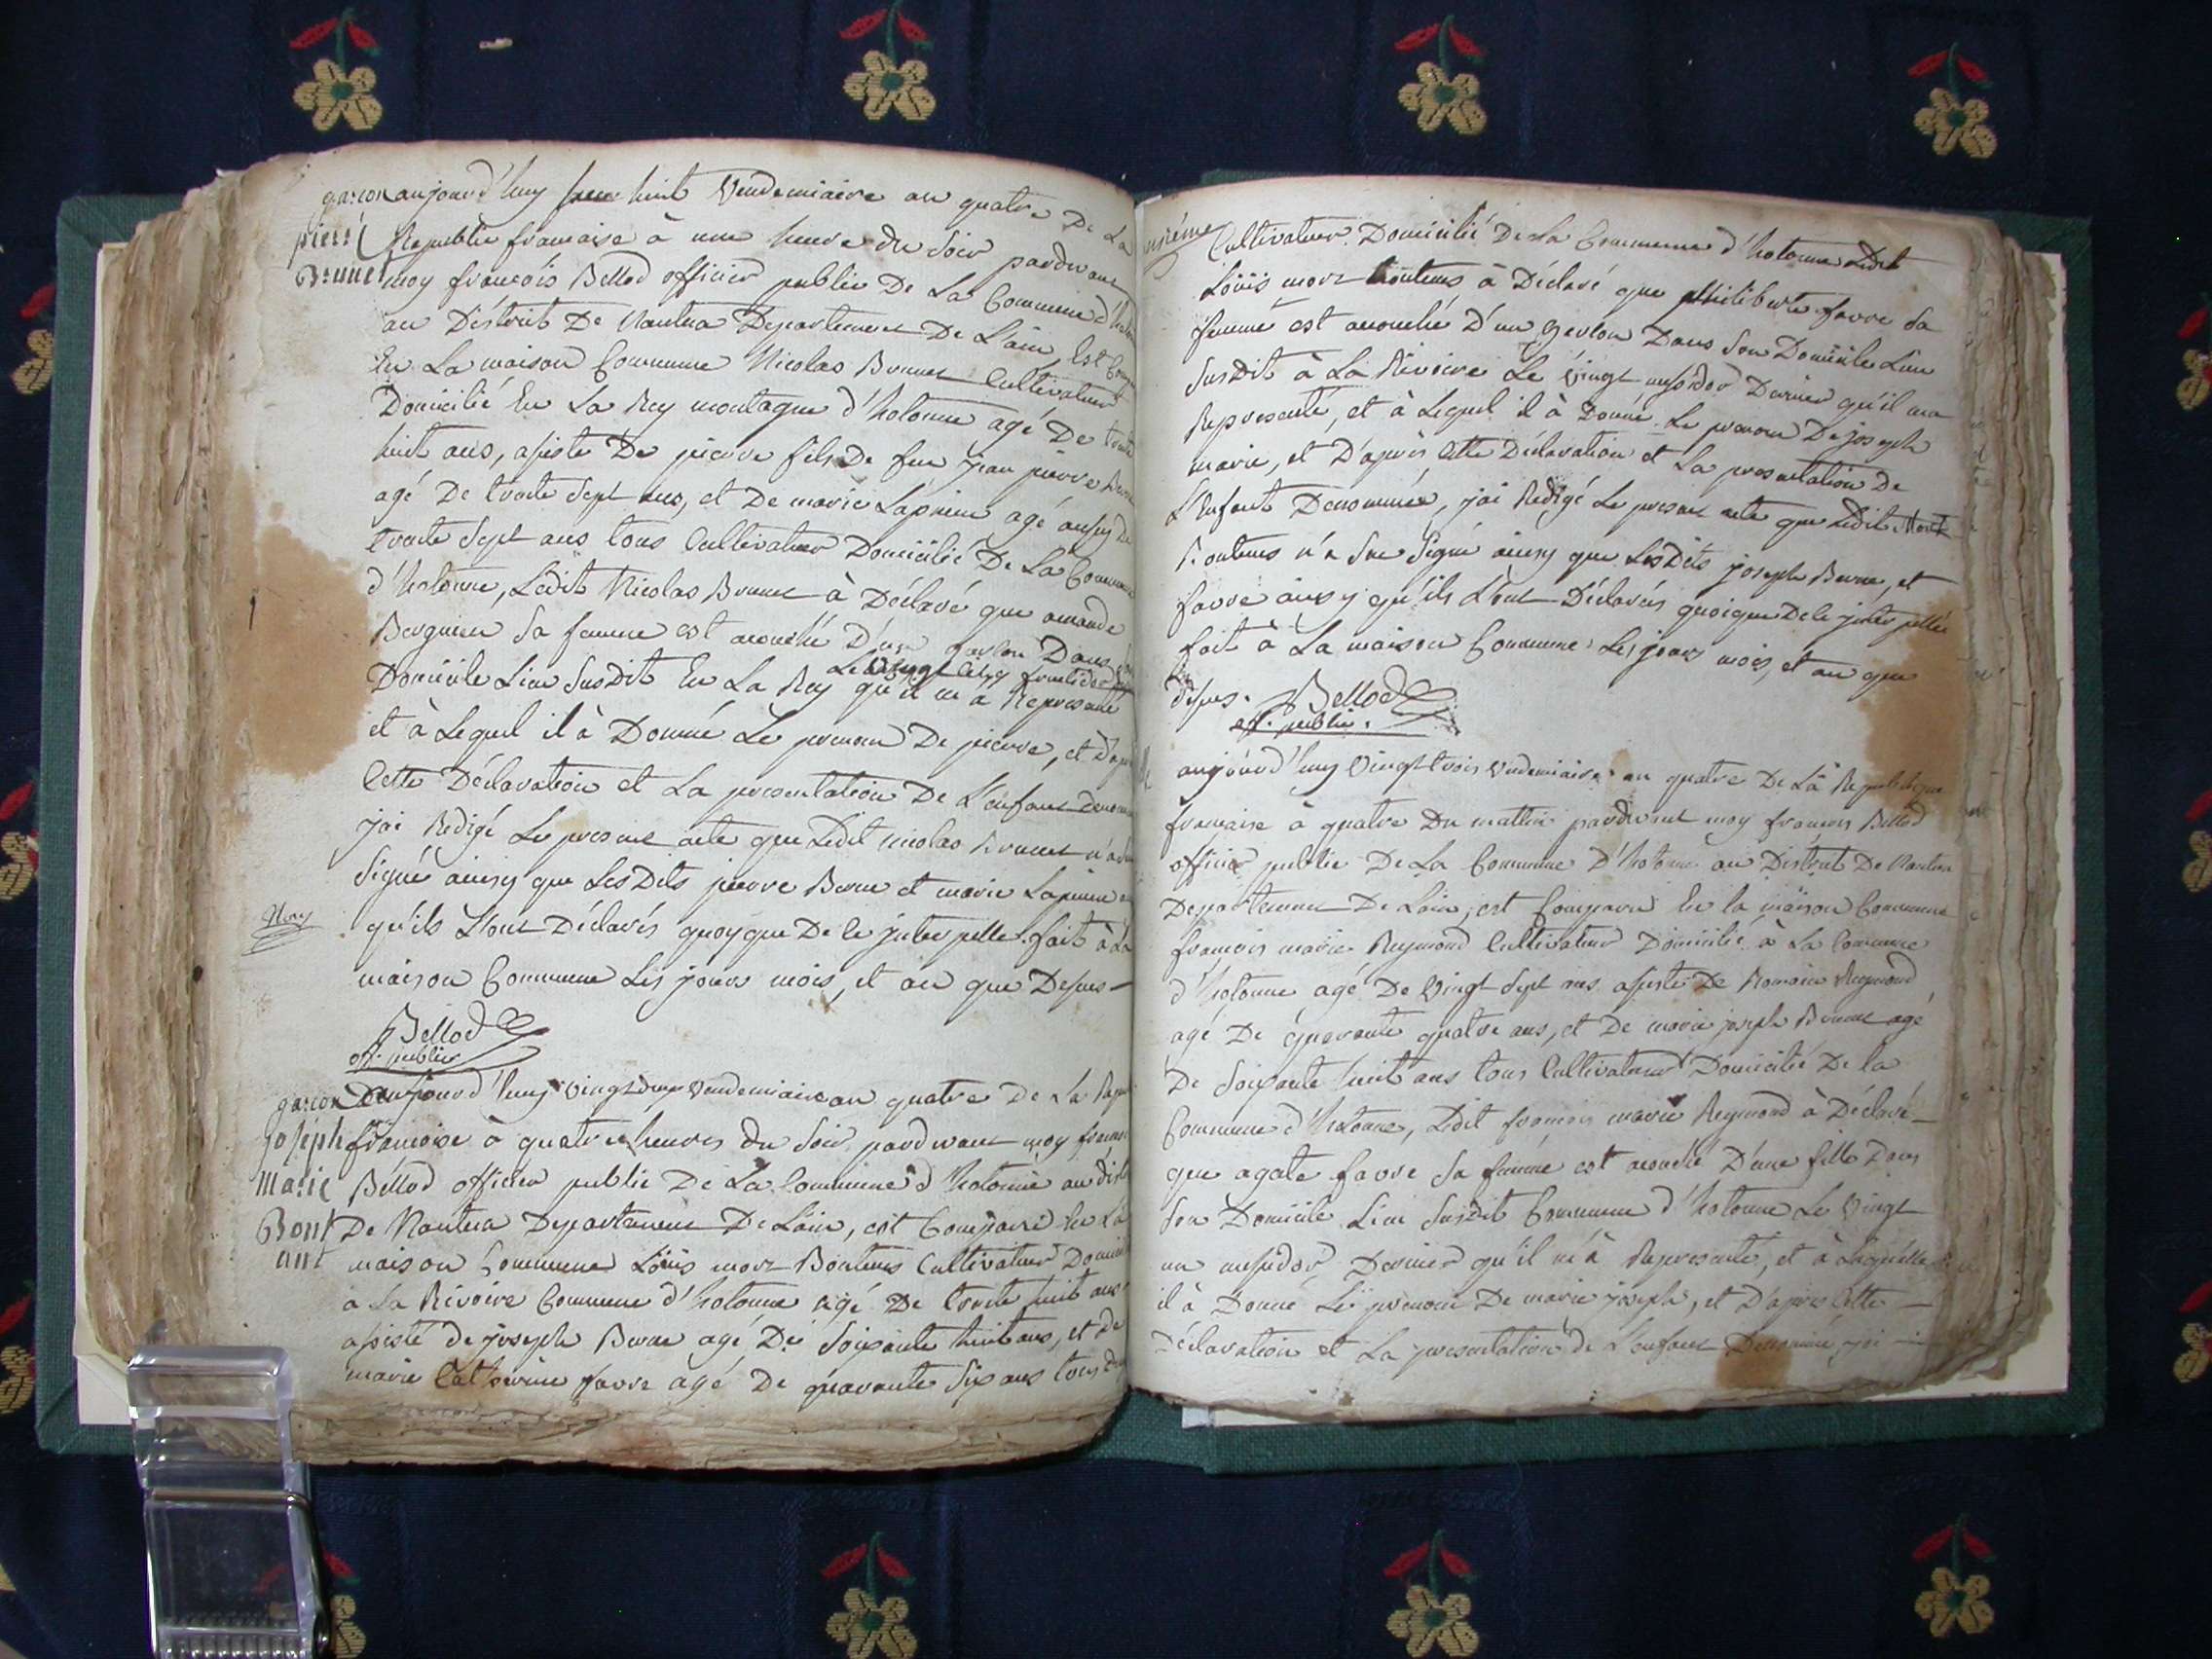 garcon aujourd'huy huit Vendemiaire an quatre De La
pierre Republic francaise à une heure du Soir pardevant
Brunet moy francois Bellod officier public De La Commune d'hotonne
au District De Nantua Departement De L'ain, Est Comp
En La maison Commune Nicolas Brunet Cultivateur
Domicilié En La Rey montagne d'hotonne agé De trente
huit ans, asisté De pierre fils De feu jean pierre
agé De trente Sept ans, et De marie Lapierre agé ausy De
trente Sept ans tous Cultivateur Domicilié De La Commune
d'hotonne, Ledit Nicolas Brunet à Déclaré que
Sa femme est acouchée D'un garson Dans Son
Le Vingt Cinq fructidor
Domicile Lieu Susdit En La Rey qu'il m'a Representé
et à Lequel il à Donné Le prenom De pierre, et D'apres
Cette Déclaration et La presentation De L'enfant denommé
jai Redigé Le present acte que Ledit nicolas Brunet n'a Su
Signé ainsy que Les Dits pierre Berne et marie Lapierre
qu'ils L'ont Déclarés quoyque De ce jnterpellé. fait à La
maison Commune Les jours mois, et an que Desus
Bellod
off. public
garcon aujourd'huy Vingt deux Vendemiaire an quatre De La Repu
joseph francoise à quatre heures du Soir pardevant moy francois
Marie Bellod officier public De La Commune d'hotonne au dist
Bont De Nantua Departement De L'ain, est Comparu En La
ant maison Commune Loüis morz Bontems Cultivateur Domicil
a La Rivoire Commune d'hotonne agé De trente huit ans
asisté de joseph Berne agé De Soixante huit ans, et de
marie Catherine favre agé De quarante Six ans tous
Cultivateur Domicilié De La Commune d'hotonne Ledit
Loüis morz Bontems à Déclaré que philiberte favre Sa
femme est acouché D'un Gerson Dans Son Domicile Lieu
Susdit à La Rivoire Le Vingt mesidor Dernier qu'il ma
Representé, et à Lequel il à Donné Le prenom De joseph
marie, et D'après Cette Déclaration et La presentation De
L'Enfant Denommée, jai Redigé Le present acte que Ledit Mort
Bontems n'a Sue Signé ainsy que Les Dits joseph Berne, et
favre ainsy qu'ils L'ont Déclarés quoique De ce jnterpellés
fait à La maison Commune Les jours mois, et an que
desus. Bellod
off. public.
aujourd'huy Vingt trois Vendemiaire an quatre De La Republique
francaise à quatre Du mattin pardevant moy francois Bellod
officier public De La Commune d'hotonne au District De Nantua
Departement De Lain, est Comparu En la maison Commune
francois marie Reymond Cultivateur Domicilié à La Commune
d'hotonne agé De Vingt Sept ans asisté De Romain Reymond
agé De quarante quatre ans, et De marie joseph Brunet agé
De Soixante huit ans tous Cultivateur Domicilié De la
Commune d'hotonne, Ledit francois marie Reymond à Déclaré
que agate favre Sa femme est acouché D'une fille Dans
Son Domicile Lieu Susdit Commune d'hotonne Le Vingt
un mesidor Dernier qu'il m'à Representé, et à Laquelle
il à Donné Le prenom De marie joseph, et D'apres Cette
Déclaration et La presentation de L'enfant Denommé, jai